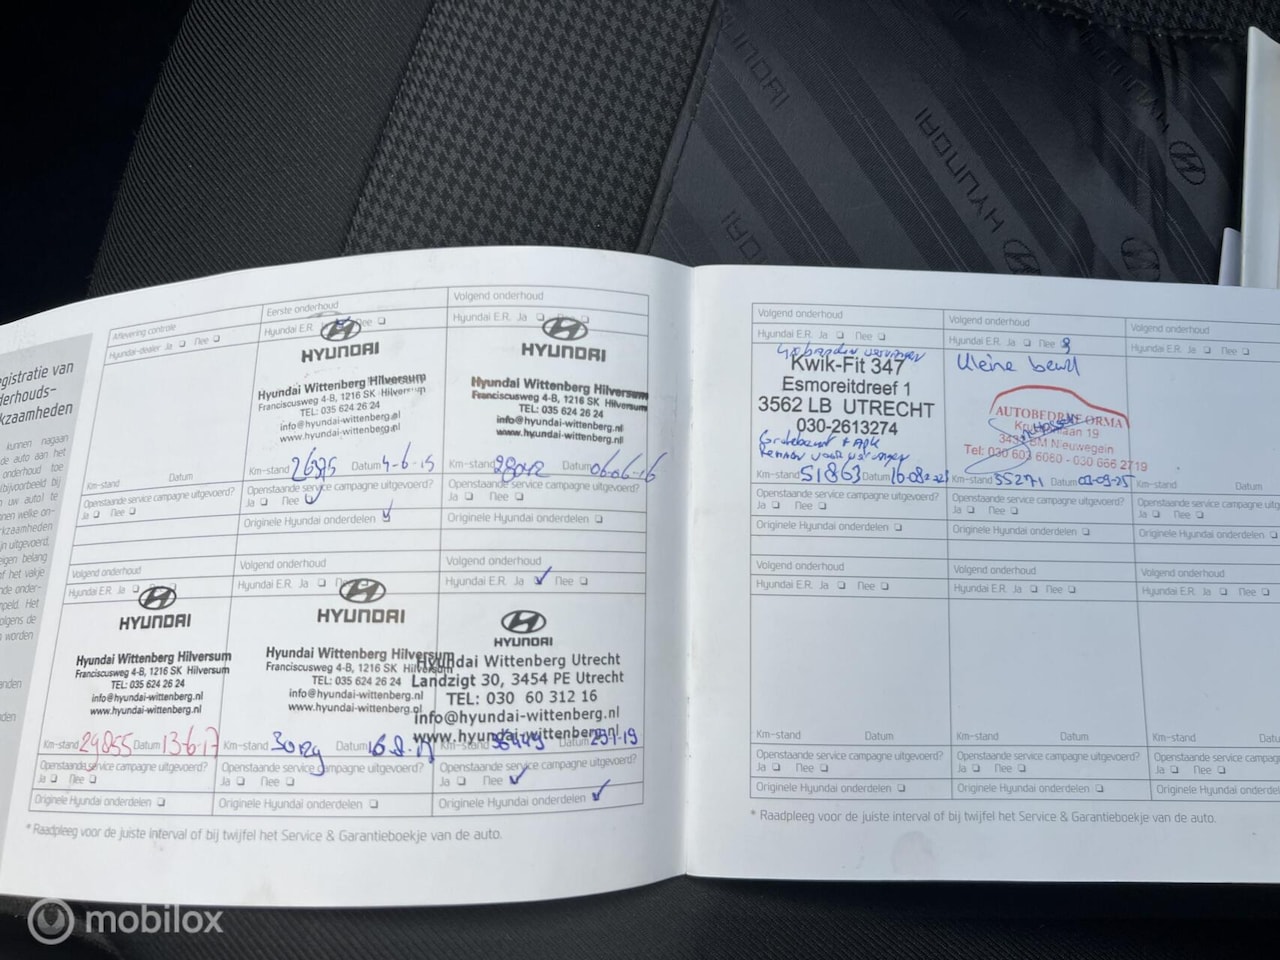 HYUNDAI
HYUNDAI
HYUNDAI
gistratie van
derhouds-
kzaamheden
kunnen nagaan
de auto aan het
onderhoud toe
(bijvoorbeeld bij
uw auto! te
welke on-
rkzaamheden
jn uitgevoerd,
eigen belang
of het vakje
nde onder-
mpeld. Het
volgens de
worden
anden
den
Aflevering controle
Hyundai-dealer Ja Nee
Km-stand Datum
Openstaande service campagne uitgevoerd?
Ja Nee
Eerste onderhoud
Hyundai E.R. Nee
HYUNDAI
Hyundai Wittenberg Hilversum
Franciscusweg 4-B, 1216 SK Hilversum
TEL: 035 624 26 24
info@hyundai-wittenberg.nl
www.hyundai-wittenberg.nl
Km-stand 2695 Datum 4-6-15
Openstaande service campagne uitgevoerd?
Ja Nee
Originele Hyundai onderdelen
Volgend onderhoud
Hyundai E.R. Ja
HYUNDAI
Hyundai Wittenberg Hilversum
Franciscusweg 4-B, 1216 SK Hilversum
TEL: 035 624 26 24
info@hyundai-wittenberg.nl
www.hyundai-wittenberg.nl
Km-stand Datum 06-06-16
Openstaande service campagne uitgevoerd?
Ja Nee
Originele Hyundai onderdelen
Volgend onderhoud
Hyundai E.R. Ja
HYUNDAI
Hyundai Wittenberg Hilversum
Franciscusweg 4-B, 1216 SK Hilversum
TEL: 035 624 26 24
info@hyundai-wittenberg.nl
www.hyundai-wittenberg.nl
Km-stand 24855 Datum 13-6-17
Openstaande service campagne uitgevoerd?
Ja Nee
Originele Hyundai onderdelen
Volgend onderhoud
Hyundai E.R. Ja
HYUNDAI
Hyundai Wittenberg Hilversum
Franciscusweg 4-B, 1216 SK Hilversum
TEL: 035 624 26 24
info@hyundai-wittenberg.nl
www.hyundai-wittenberg.nl
Km-stand Datum
Openstaande service campagne uitgevoerd?
Ja Nee
Originele Hyundai onderdelen
Volgend onderhoud
Hyundai E.R. Ja Nee
HYUNDAI
Hyundai Wittenberg Utrecht
Landzigt 30, 3454 PE Utrecht
TEL: 030 60 312 16
info@hyundai-wittenberg.nl
www.hyundai-wittenberg.nl
Km-stand Datum
Openstaande service campagne uitgevoerd?
Ja Nee
Originele Hyundai onderdelen
* Raadpleeg voor de juiste interval of bij twijfel het Service & Garantieboekje van de auto.
Volgend onderhoud
Hyundai E.R. Ja Nee
Kwik-Fit 347
Esmoreitdreef 1
3562 LB UTRECHT
030-2613274
Km-stand 51863 Datum
Openstaande service campagne uitgevoerd?
Ja Nee
Originele Hyundai onderdelen
Volgend onderhoud
Hyundai E.R. Ja Nee
Kleine beurt
AUTOBEDRIJF ORMA
19
Nieuwegein
Tel: 030 603 6060 - 030 666 2719
Km-stand 55271 Datum
Openstaande service campagne uitgevoerd?
Ja Nee
Originele Hyundai onderdelen
Volgend onderhoud
Hyundai E.R. Ja Nee
Km-stand Datum
Openstaande service campagne uitg
Ja Nee
Originele Hyundai onderdelen
Volgend onderhoud
Hyundai E.R. Ja Nee
Km-stand Datum
Openstaande service campagne uitgevoerd?
Ja Nee
Originele Hyundai onderdelen
Volgend onderhoud
Hyundai E.R. Ja Nee
Km-stand Datum
Openstaande service campagne uitgevoerd?
Ja Nee
Originele Hyundai onderdelen
Volgend onderhoud
Hyundai E.R. Ja Nee
Km-stand Datum
Openstaande service campagne
Ja Nee
Originele Hyundai onderdelen
* Raadpleeg voor de juiste interval of bij twijfel het Service & Garantieboekje van de auto.
mobilox